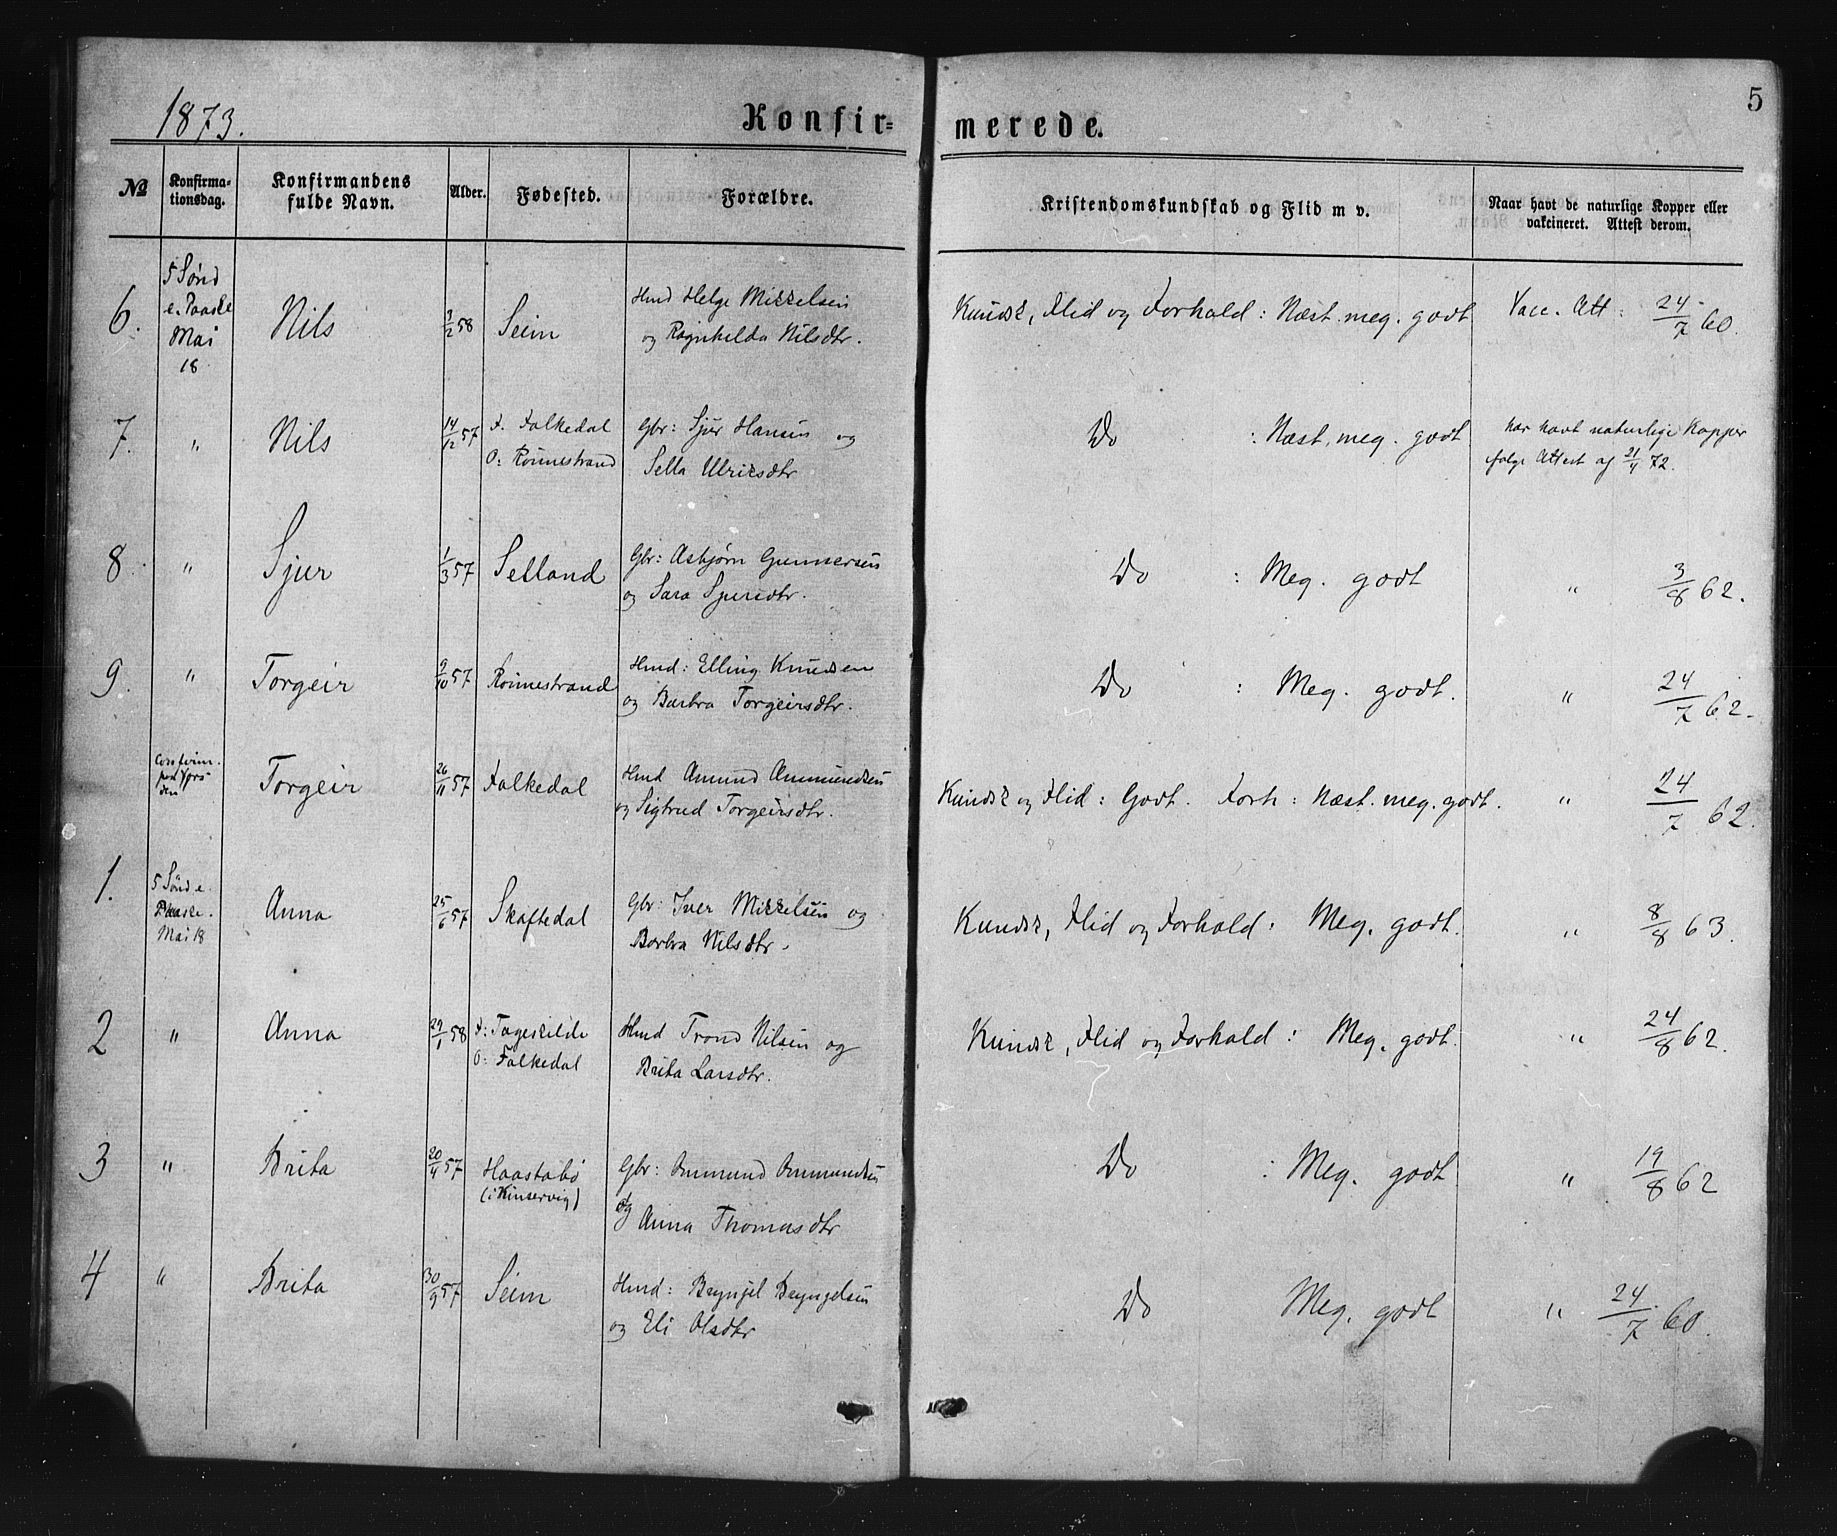 1873.
Konfir=
merede.
5
No
Konfirma=
tionsdag.
Konfirmandens
fulde Navn.
Alder.
Fødested.
Forældre.
Kristendomskundskab og Flid m v.
Naar havt de naturlige Kopper eller
vakcineret. Attest derom.
6.
5 Sønd
e. Paaske
Mai
18
Nils
58
Seim
Hmd Helge Mikkelsen
og Ragnhilda Nilsdtr.
Kundsk, Flid og Forhold : Næst. meg. godt
Vacc. Att : 24/7 60.
7.
"
Nils
14/12 57
F. Falkedal
O: Rønnestrand
Gbr: Sjur Hansen og
Sella Ulriksdtr
Do : Næst. meg. godt
har havt naturlige Kopper
ifølge Attest af 21/4 72.
8
"
Sjur
1/3 57
Selland
Gbr: Asbjørn Gunnarsen
og Sara Sjursdtr.
Do : Meg. godt
" 3/8 62.
9.
"
Torgeir
9/10 57
Rønnestrand
Hmd: Elling Knudsen
og Barbra Torgeirsdtr.
Do : Meg. godt.
" 24/7 62.
Confirm.
paa Vors
den
Torgeir
26/11 57
Falkedal
Hmd Amund Ammundsen
og Sigtrud Torgeirsdtr.
Kundsk og Flid : Godt. Forh : Næst. meg. godt.
" 24/7 62.
1.
5 Sønd e.
Paaske.
Mai 18
Anna
25/6 57
Skaftedal
Gbr: Iver Mikkelsen og
Barbra Nilsdtr.
Kundsk, Flid og Forhold : Meg. godt.
" 8/8 63.
2
"
Anna
29/1 58
F: Tageskilde
O: Falkedal
Hmd Trond Nilsen og
Brita Larsdtr.
Kundsk, Flid og Forhold : Meg. godt.
" 24/8 62.
3
"
Brita
20/4 57
Haastabø
(i Kinservig)
Gbr: Ammund Ammundsen
og Anna Thomasdtr
Do : Meg. godt
" 19/8 62
4
"
Brita
30/9 57
Seim
Hmd: Brynjel Bryngelsen
og Eli Olsdtr
Do Meg. godt
" 24/7 60.